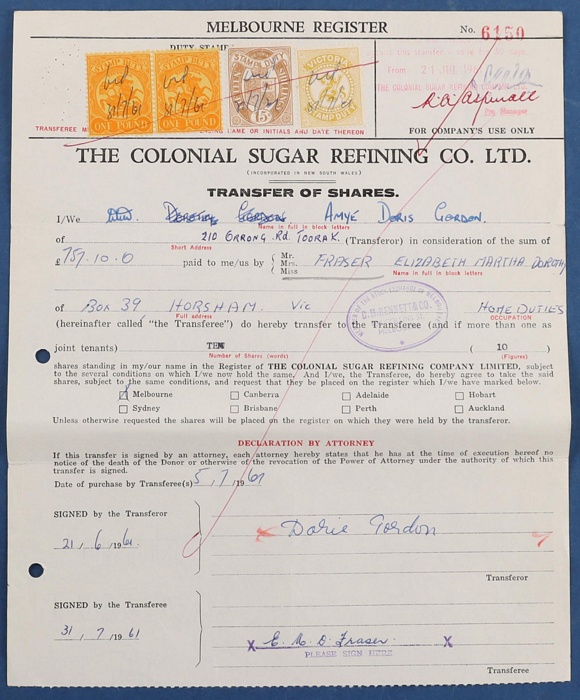 MELBOURNE REGISTER
No. 6150
DUTY STAMP
STAMP DUTY STAMP DUTY STAMP DUTY VICTORIA
ONE POUND ONE POUND 15 STAMP DUTY
31/7/61 31/7/61 31/7/61 31/7/61
From 21 JUL 196
THE COLONIAL SUGAR REFINING COMPANY LTD.
TRANSFEREE M NAME OR INITIALS AND DATE THEREON
FOR COMPANY'S USE ONLY
THE COLONIAL SUGAR REFINING CO. LTD.
(INCORPORATED IN NEW SOUTH WALES)
TRANSFER OF SHARES.
I/We Gordon Amye Doris Gordon.
Name in full in block letters
of 210 Orrong Rd Toorak. (Transferor) in consideration of the sum of
Short Address
£ 757.10.0 paid to me/us by { Mr. Mrs. Miss FRASER ELIZABETH MARTHA DOROTHY
Name in full in block letters
of Box 39 HORSHAM. Vic HOME DUTIES
Full address OCCUPATION
(hereinafter called "the Transferee") do hereby transfer to the Transferee (and if more than one as
joint tenants) TEN ( 10 )
Number of Shares (words) (Figures)
shares standing in my/our name in the Register of THE COLONIAL SUGAR REFINING COMPANY LIMITED, subject
to the several conditions on which I/we now hold the same. And I/we, the Transferee, do hereby agree to take the said
shares, subject to the same conditions, and request that they be placed on the register which I/we have marked below.
Melbourne Canberra Adelaide Hobart
Sydney Brisbane Perth Auckland
Unless otherwise requested the shares will be placed on the register on which they were held by the transferor.
DECLARATION BY ATTORNEY
If this transfer is signed by an attorney, each attorney hereby states that he has at the time of execution hereof no
notice of the death of the Donor or otherwise of the revocation of the Power of Attorney under the authority of which this
transfer is signed.
Date of purchase by Transferee(s) 5, 7, 1961
SIGNED by the Transferor
21, 6, 1961.
Doris Gordon
Transferor
SIGNED by the Transferee
31, 7, 1961
X E. M. D. Fraser. X
PLEASE SIGN HERE
Transferee